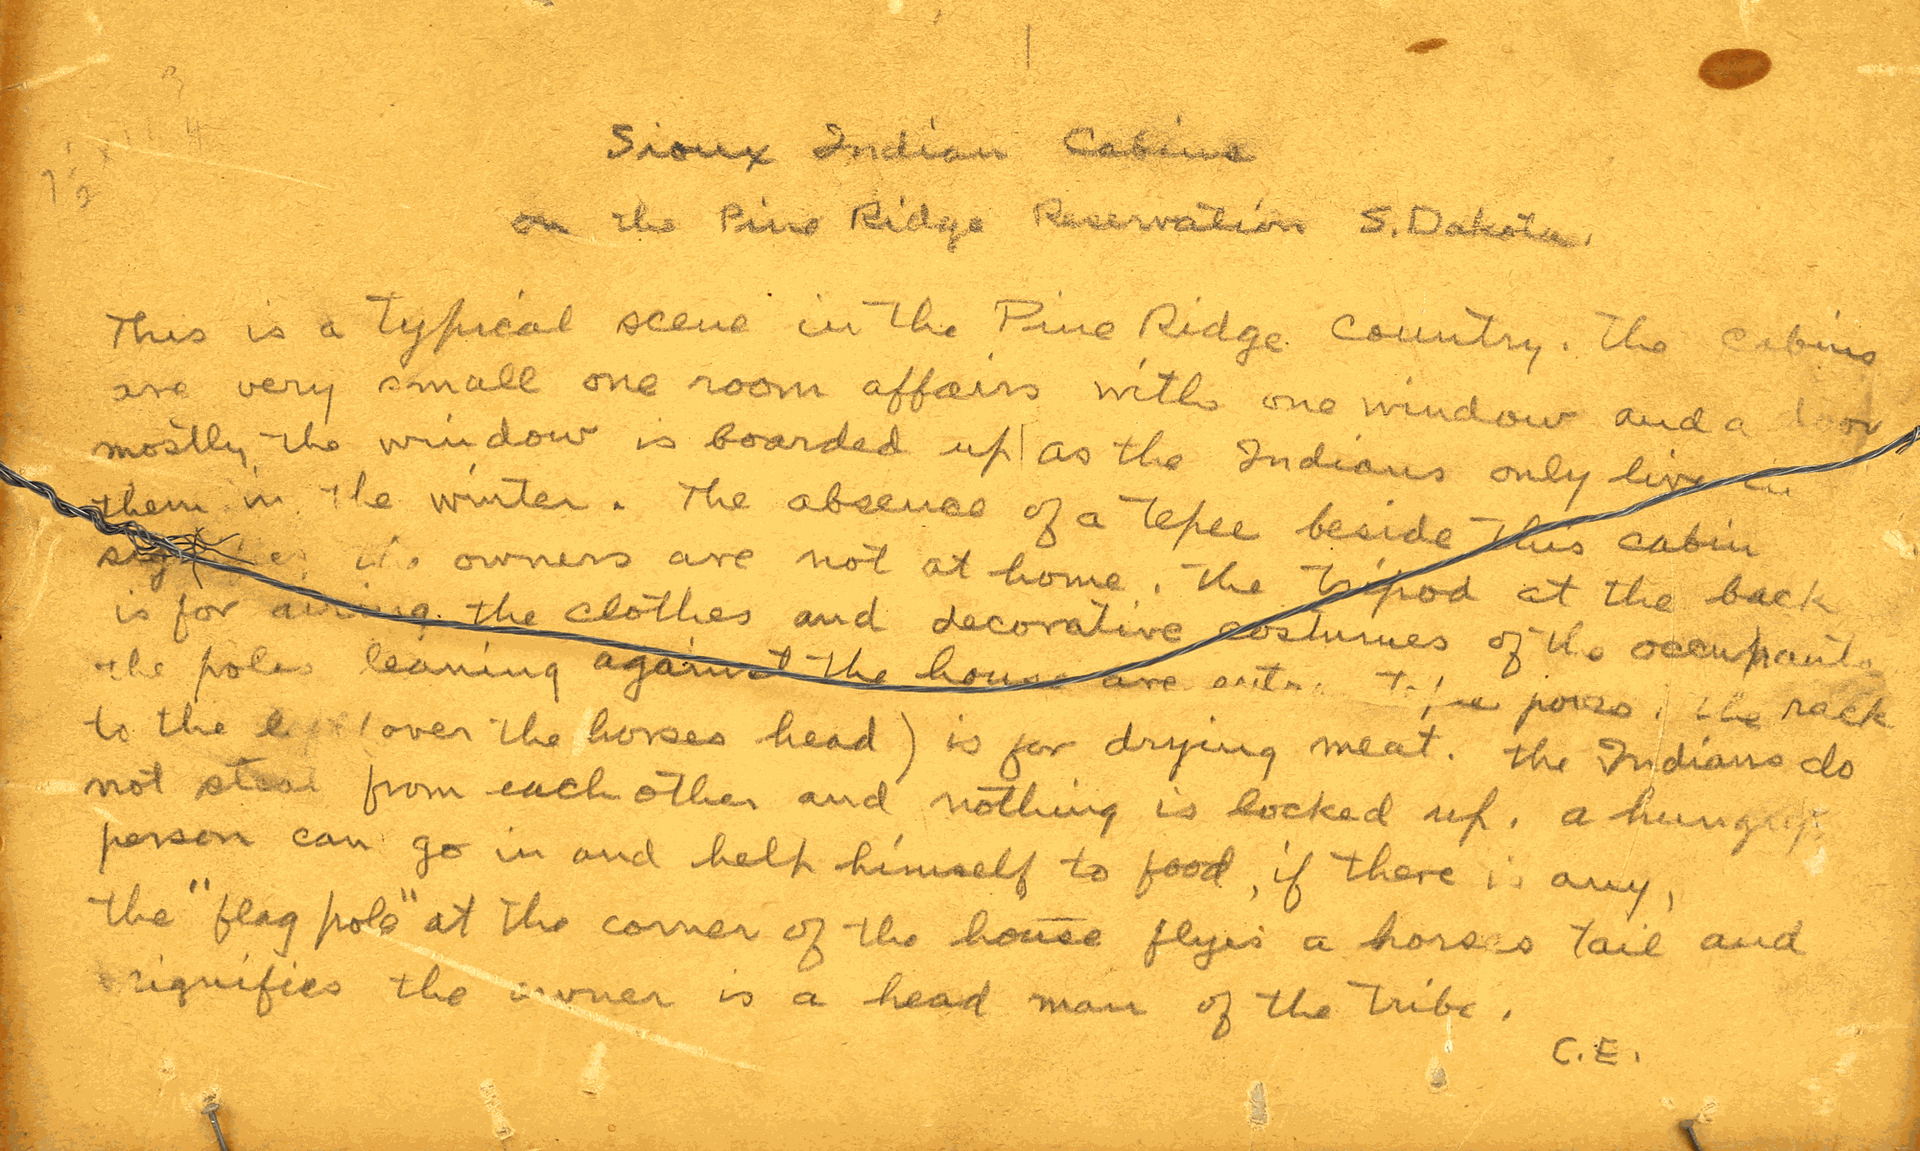 Sioux Indian Cabins
on the Pine Ridge Reservation S. Dakota.
This is a typical scene in the Pine Ridge country. The cabins
are very small one room affairs with one window and a door
mostly, the window is boarded up as the Indians only live in
them in the winter. The absence of a tepee beside this cabin
the owners are not at home. The tripod at the back
is for airing the clothes and decorative costumes of the occupants
the poles leaning against the house are poles. The rack
to the (over the horses head) is for drying meat. The Indians do
not steal from each other and nothing is locked up. a hungry
person can go in and help himself to food, if there is any,
the "flag pole" at the corner of the house flyes a horses tail and
signifies the owner is a head man of the tribe.
C.E.